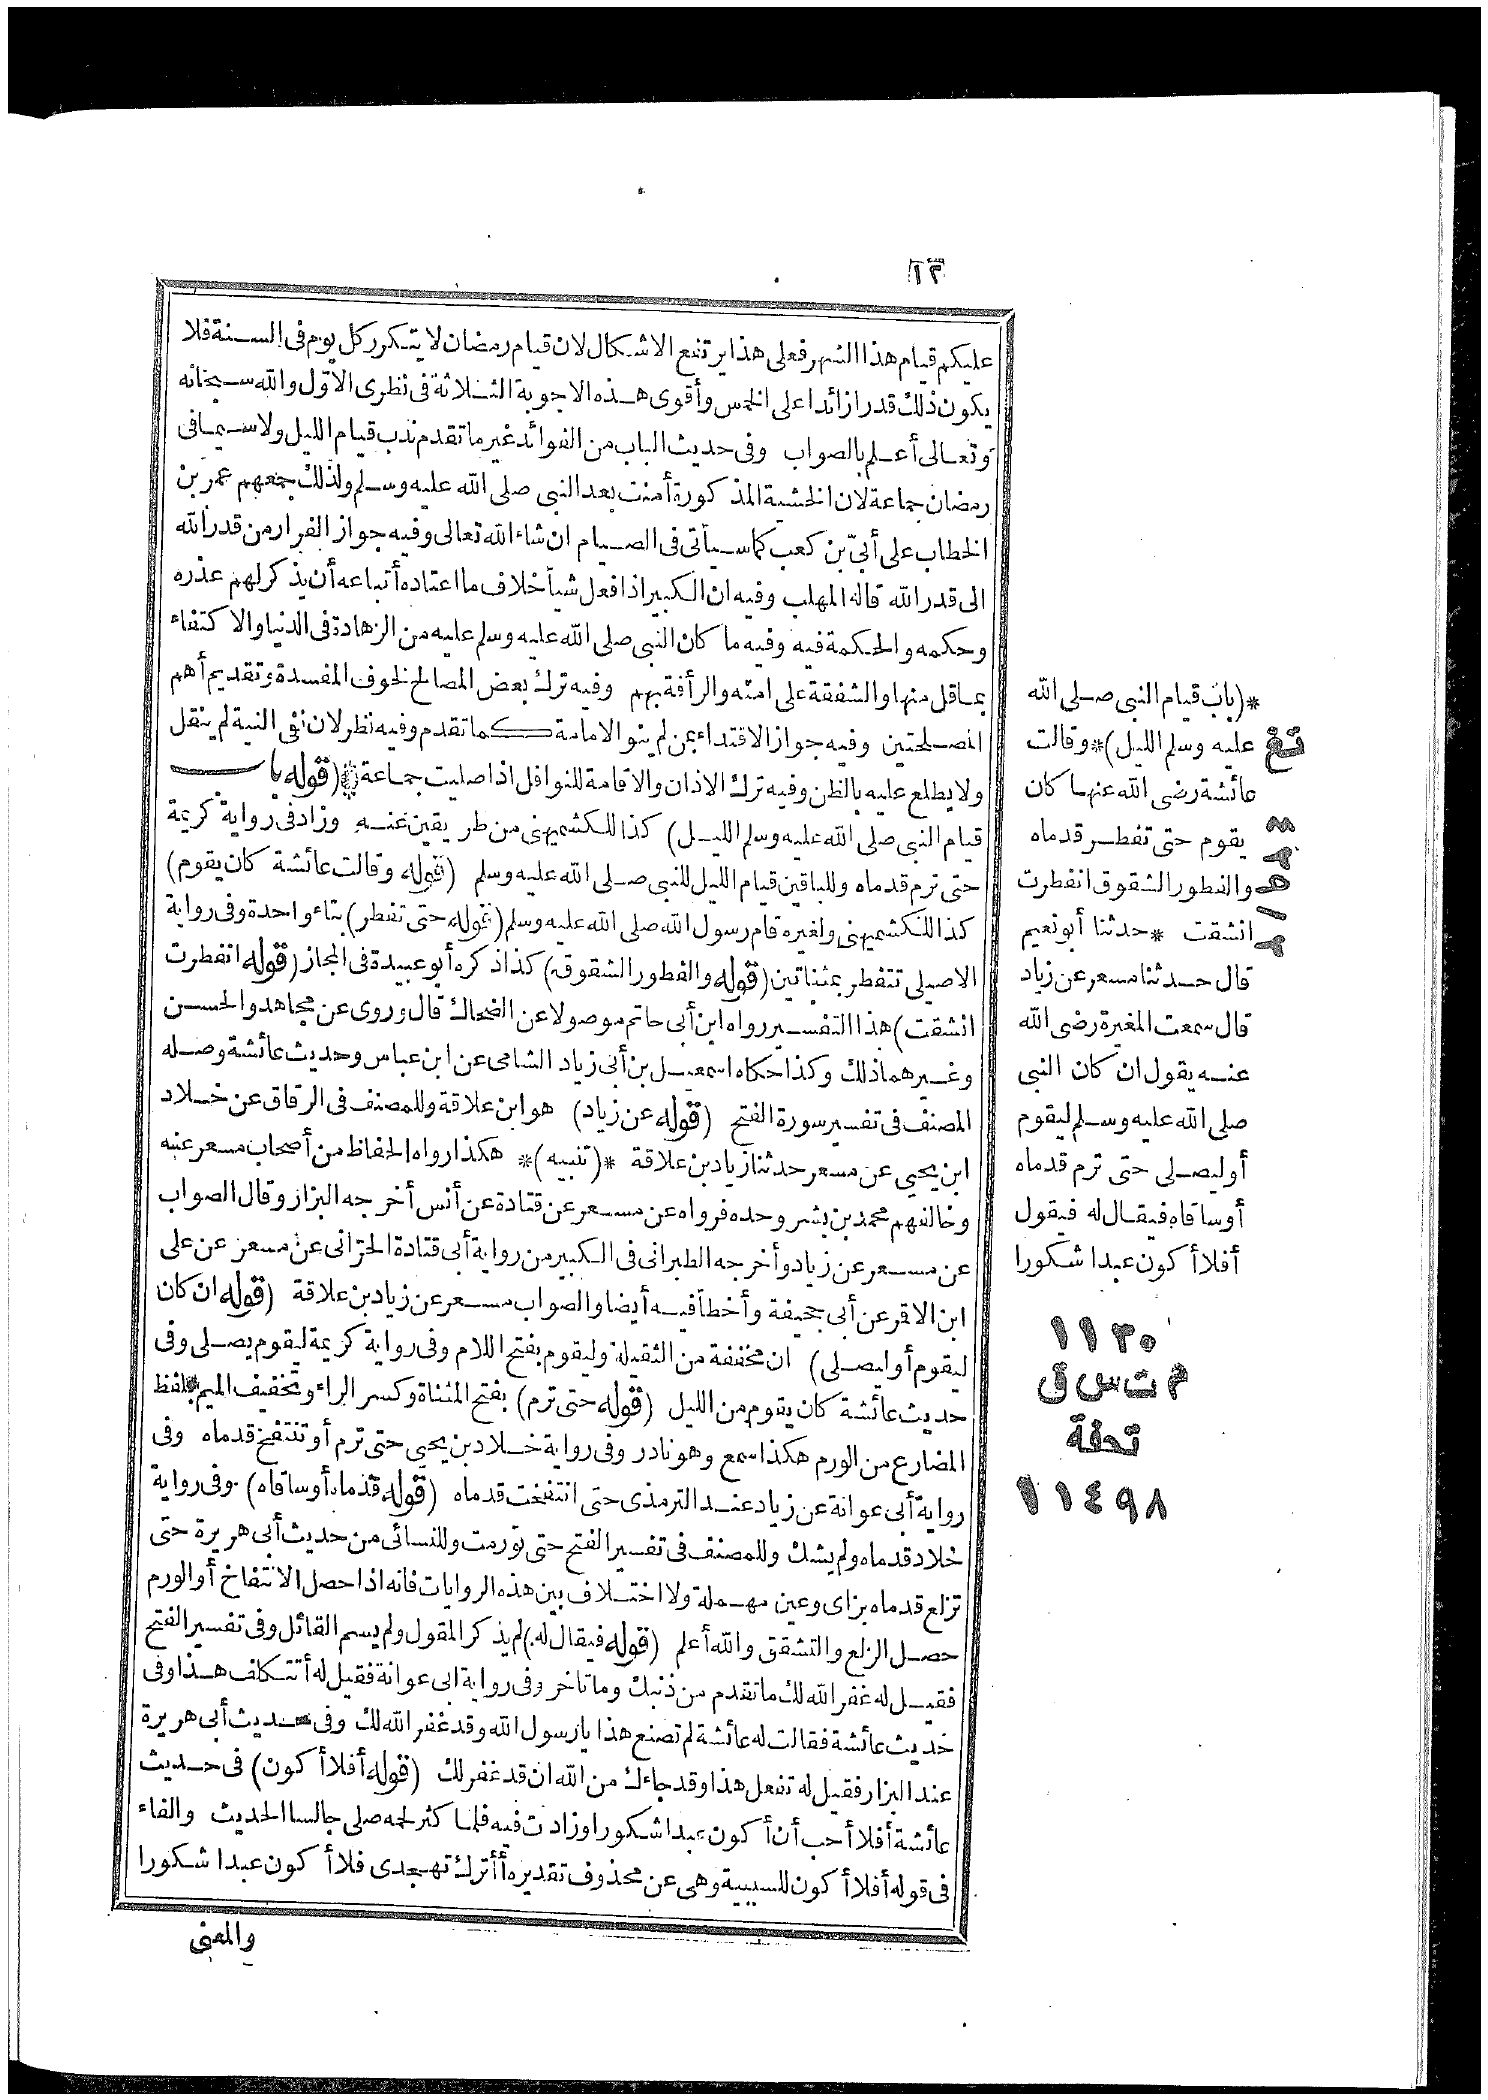 ١٢
عليكم قيام هذا الشهر فعلى هذا يرتفع الاشكال لان قيام رمضان لا يتكرر كل يوم فى السنة فلا
يكون ذلك قدرا زائدا على الخمس وأقوى هذه الاجوبة الثلاثة فى نظرى الاول والله سبحانه
وتعالى أعلم بالصواب وفى حديث الباب من الفوائد غير ما تقدم ندب قيام الليل ولا سيما فى
رمضان جماعة لان الخشية المذكورة أمنت بعد النبى صلى الله عليه وسلم ولذلك جمعهم عمر بن
الخطاب على أبىّ بن كعب كما سيأتى فى الصيام ان شاء الله تعالى وفيه جواز الفرار من قدر الله
الى قدر الله قاله المهلب وفيه ان الكبير اذا فعل شيأ خلاف ما اعتاده أتباعه أن يذكر لهم عذره
وحكمه والحكمة فيه وفيه ما كان النبى صلى الله عليه وسلم عليه من الزهادة فى الدنيا والاكتفاء
بما قل منها والشفقة على امته والرأفة بهم وفيه ترك بعض المصالح لخوف المفسدة وتقديم أهم
المصلحتين وفيه جواز الاقتداء بمن لم ينو الامامة كما تقدم وفيه نظر لان نفى النية لم ينقل
ولا يطلع عليه بالظن وفيه ترك الاذان والاقامة للنوافل اذا صليت جماعة (قوله باب
قيام النبى صلى الله عليه وسلم الليل) كذا للكشميهنى من طريقين عنه وزاد فى رواية كريمة
حتى ترم قدماه وللباقين قيام الليل للنبى صلى الله عليه وسلم (قوله وقالت عائشة كان يقوم)
كذا للكشميهنى ولغيره قام رسول الله صلى الله عليه وسلم (قوله حتى تفطر) بتاء واحدة وفى رواية
الاصيلى تتفطر بمثناتين (قوله والفطور الشقوق) كذا ذكره أبو عبيدة فى المجاز (قوله انفطرت
انشقت) هذا التفسير رواه ابن أبى حاتم موصولا عن الضحاك قال وروى عن مجاهد والحسن
وغيرهما ذلك وكذا حكاه اسمعيل بن أبى زياد الشامى عن ابن عباس وحديث عائشة وصله
المصنف فى تفسير سورة الفتح (قوله عن زياد) هو ابن علاقة وللمصنف فى الرقاق عن خلاد
ابن يحيى عن مسعر حدثنا زياد بن علاقة *(تنبيه)* هكذا رواه الحفاظ من أصحاب مسعر عنه
وخالفهم محمد بن بشر وحده فرواه عن مسعر عن قتادة عن أنس أخرجه البزار وقال الصواب
عن مسعر عن زياد وأخرجه الطبرانى فى الكبير من رواية أبى قتادة الحرّانى عن مسعر عن على
ابن الاقر عن أبى جحيفة وأخطأ فيه أيضا والصواب مسعر عن زياد بن علاقة (قوله ان كان
ليقوم أو ليصلى) ان مخففة من الثقيلة وليقوم بفتح اللام وفى رواية كريمة ليقوم يصلى وفى
حديث عائشة كان يقوم من الليل (قوله حتى ترم) بفتح المثناة وكسر الراء وتخفيف الميم بلفظ
المضارع من الورم هكذا سمع وهو نادر وفى رواية خلاد بن يحيى حتى ترم أو تنتفخ قدماه وفى
رواية أبى عوانة عن زياد عند الترمذى حتى انتفخت قدماه (قوله قدماه أو ساقاه) وفى رواية
خلاد قدماه ولم يشك وللمصنف فى تفسير الفتح حتى تورمت وللنسائى من حديث أبى هريرة حتى
تزلع قدماه بزاى وعين مهملة ولا اختلاف بين هذه الروايات فانه اذا حصل الانتفاخ أو الورم
حصل الزلع والتشقق والله أعلم (قوله فيقال له) لم يذكر المقول ولم يسم القائل وفى تفسير الفتح
فقيل له غفر الله لك ما تقدم من ذنبك وما تأخر وفى رواية ابى عوانة فقيل له أتتكلف هذا وفى
حديث عائشة فقالت له عائشة لم تصنع هذا يا رسول الله وقد غفر الله لك وفى حديث أبى هريرة
عند البزار فقيل له تفعل هذا وقد جاءك من الله ان قد غفر لك (قوله أفلا أكون) فى حديث
عائشة أفلا أحب أن أكون عبدا شكورا وزادت فيه فلما كثر لحمه صلى جالسا الحديث والفاء
فى قوله أفلا أكون للسببية وهى عن محذوف تقديره أأترك تهجدى فلا أكون عبدا شكورا
والمعنى
*(باب قيام النبى صلى الله
عليه وسلم الليل)* وقالت
عائشة رضى الله عنها كان
يقوم حتى تفطر قدماه
والفطور الشقوق انفطرت
انشقت * حدثنا أبو نعيم
قال حدثنا مسعر عن زياد
قال سمعت المغيرة رضى الله
عنه يقول ان كان النبى
صلى الله عليه وسلم ليقوم
أو ليصلى حتى ترم قدماه
أو ساقاه فيقال له فيقول
أفلا أكون عبدا شكورا
تغ
١١٣٠
م ت س ق
تحفة
١١٤٩٨